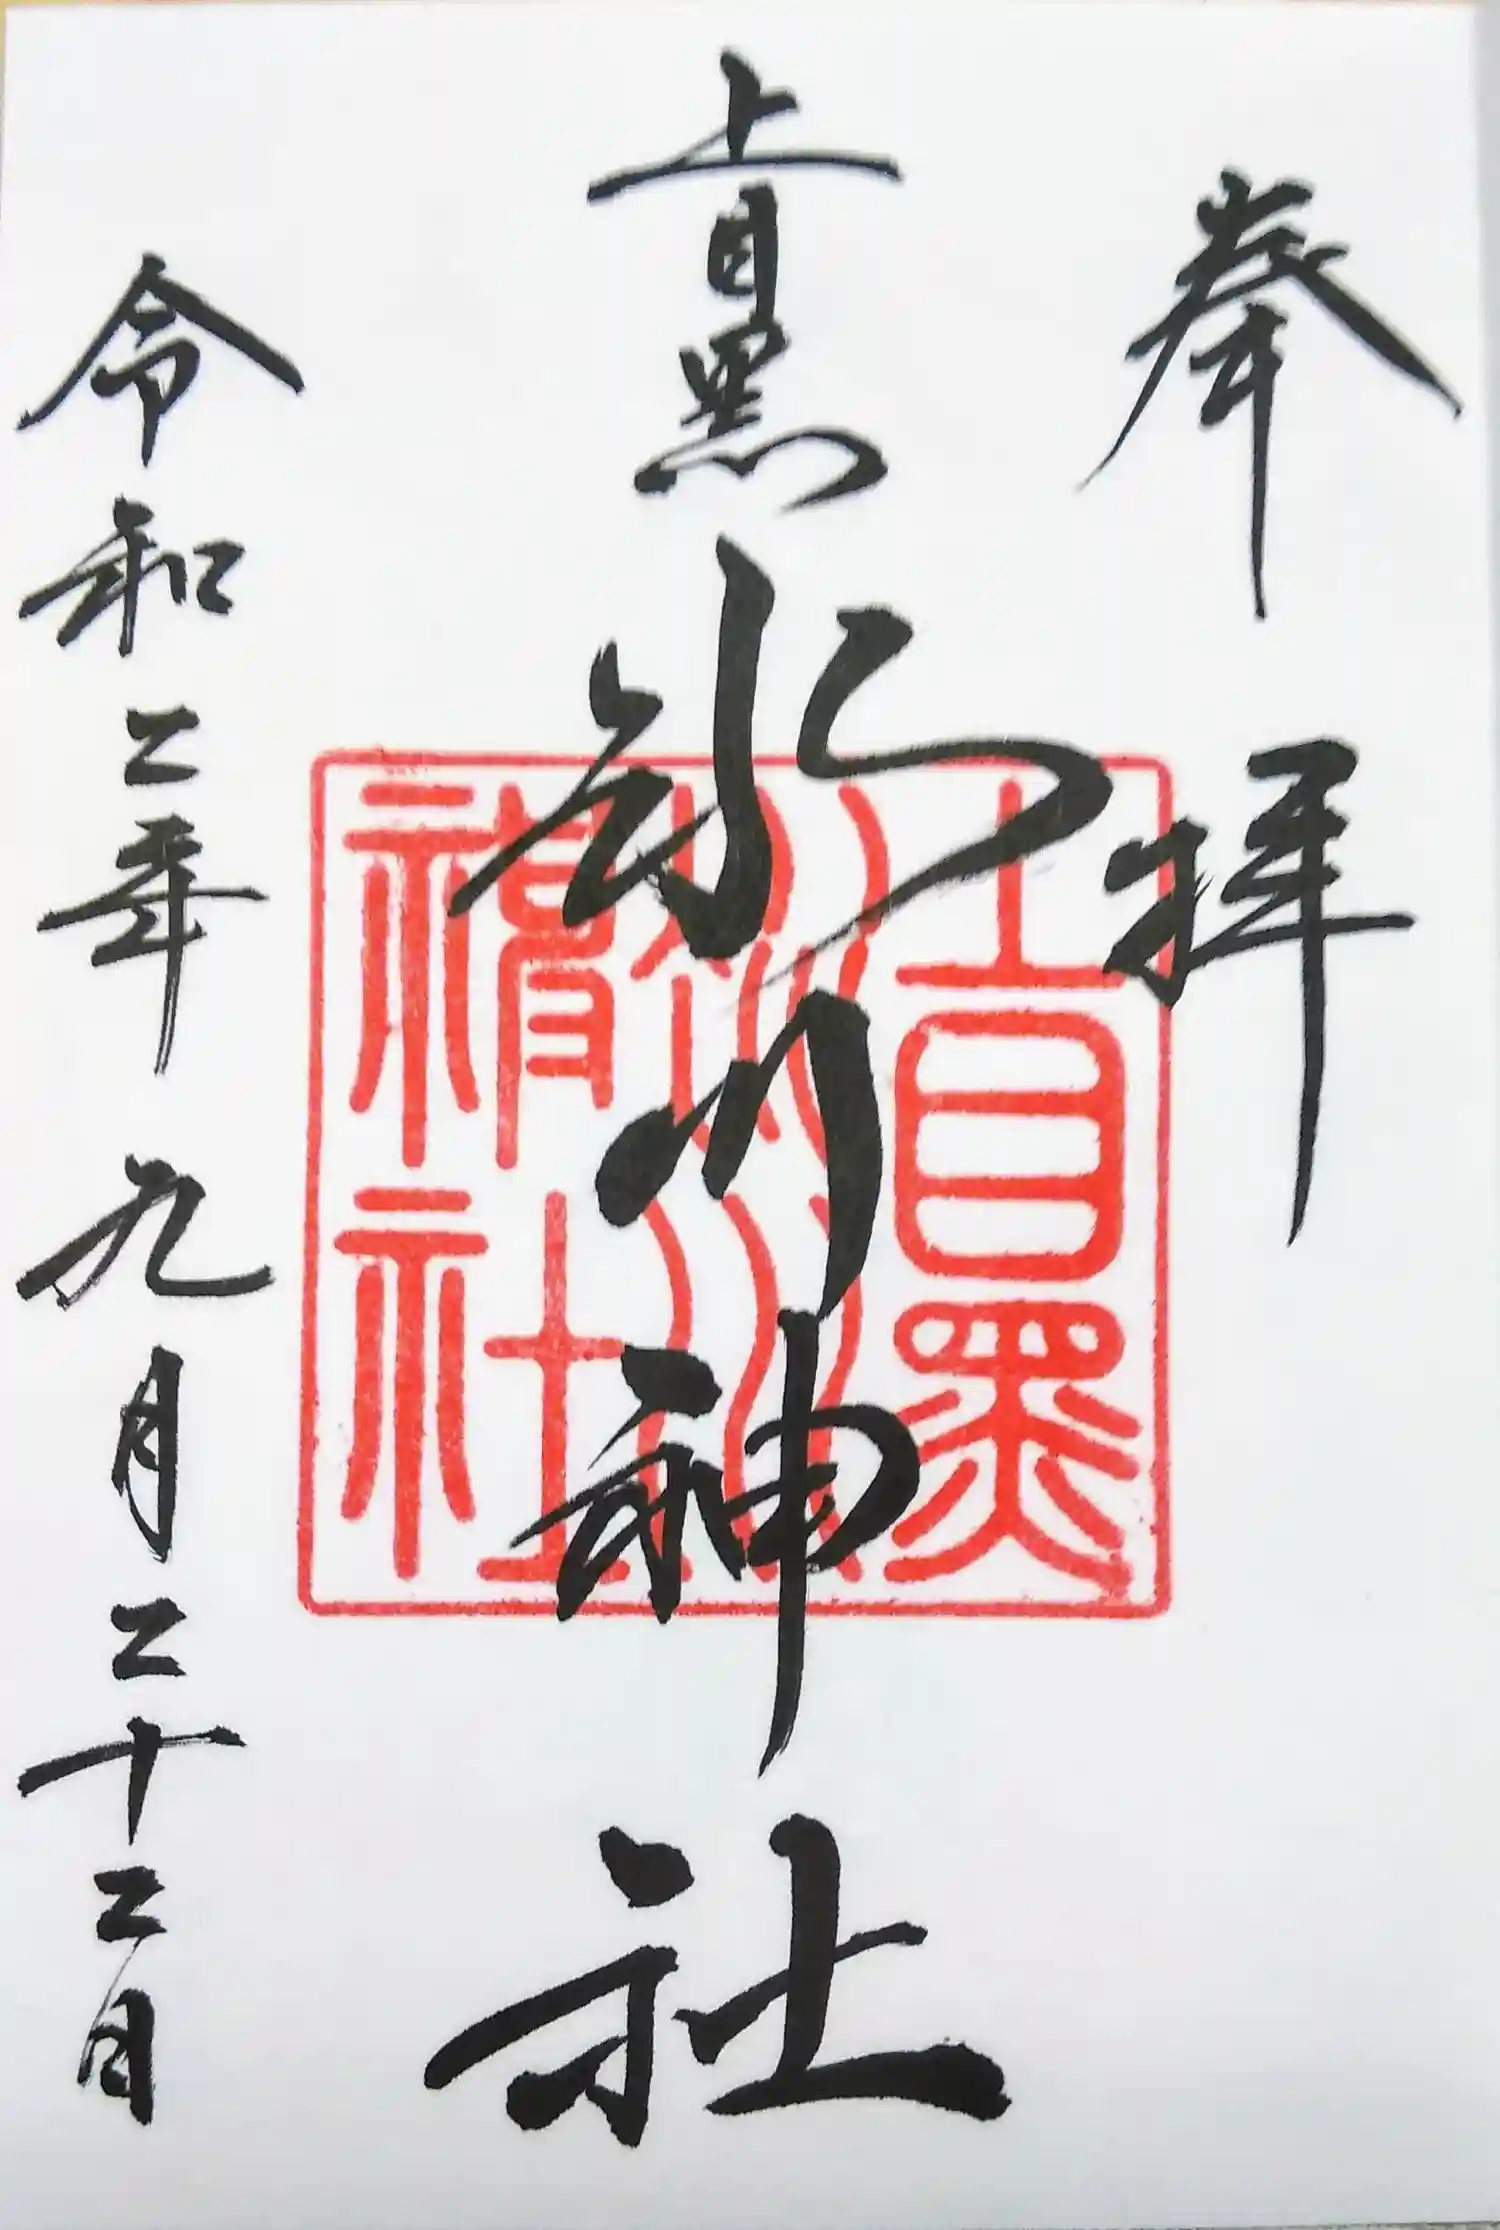 奉拝
上目黒氷川神社
上目黒
氷川
神社
令和二年九月二十二日